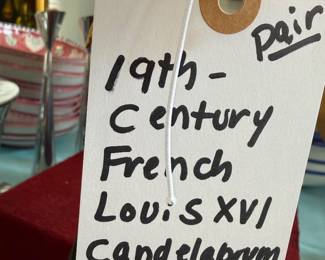 pair
19th-
Century
French
Louis XVI
Candelabrum